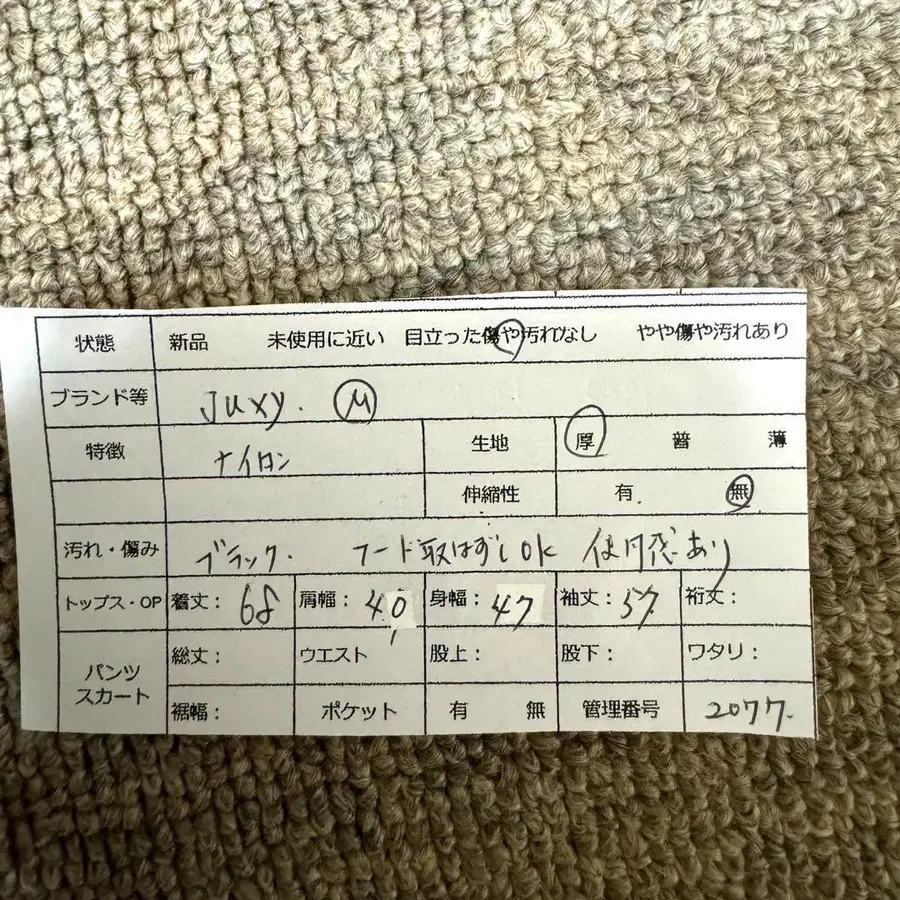 状態 新品 未使用に近い 目立った傷や汚れなし やや傷や汚れあり
ブランド等 Juxy. M
特徴 ナイロン 生地 厚 普 薄
伸縮性 有 無
汚れ・傷み ブラック. フード取はずしOK 使用感あり
トップス・OP 着丈: 68 肩幅: 40 身幅: 47 袖丈: 57 裄丈:
パンツ スカート 総丈: ウエスト 股上: 股下: ワタリ:
裾幅: ポケット 有 無 管理番号 2077.